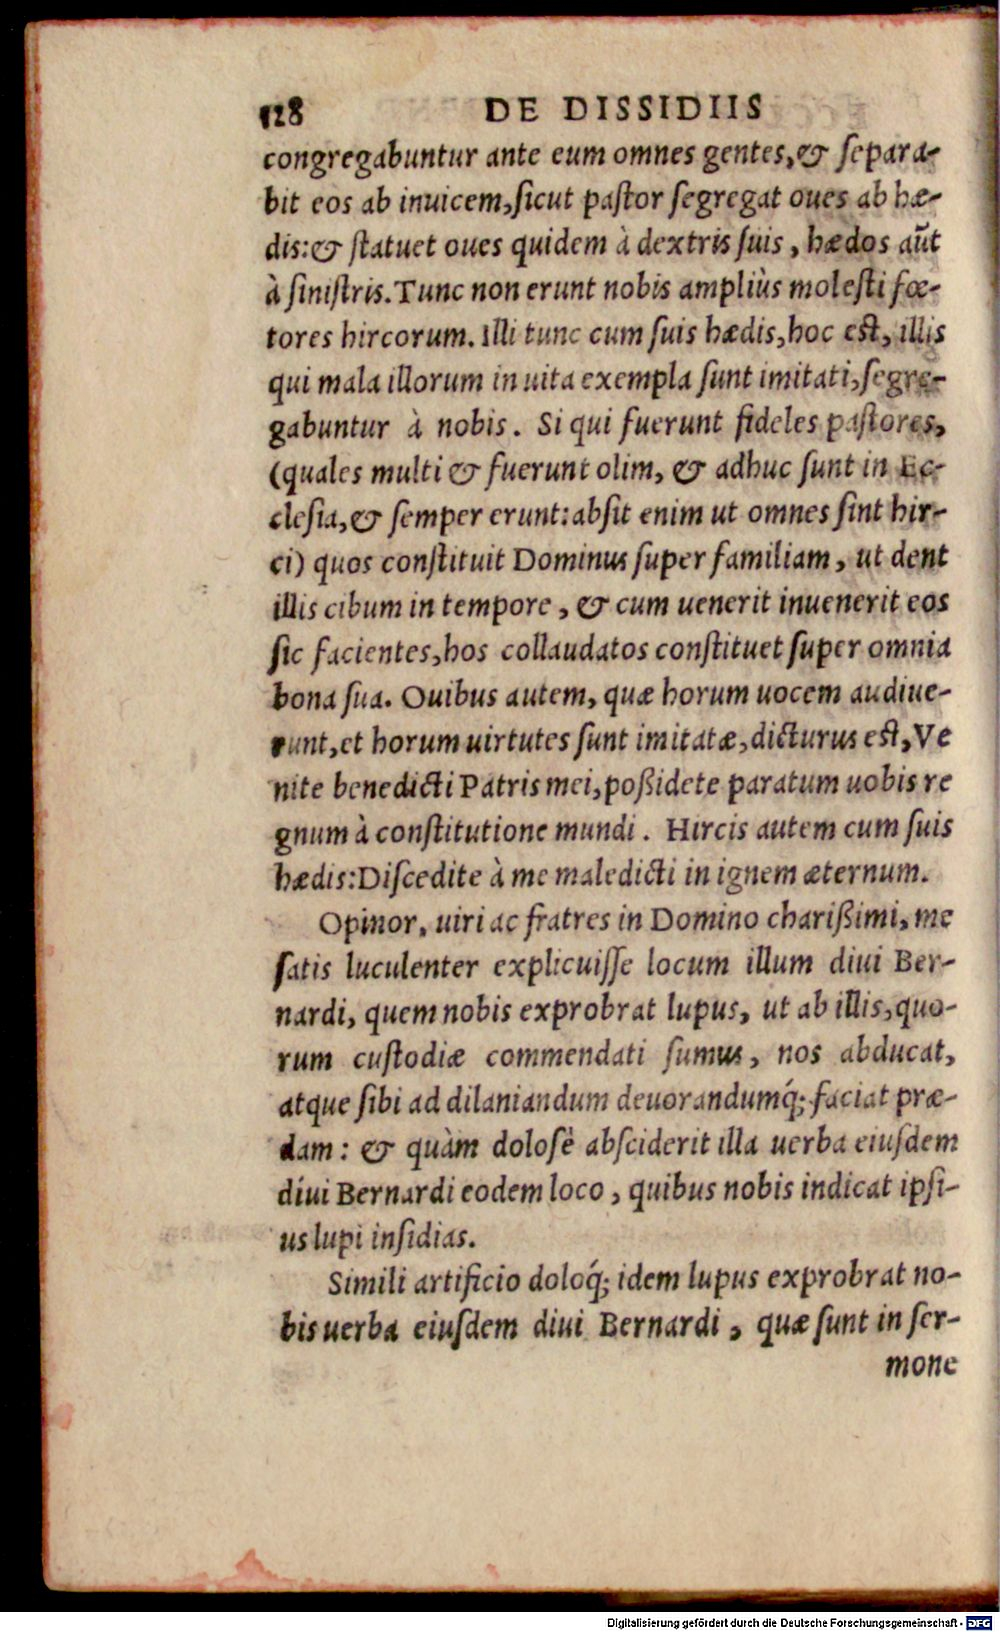 128 DE DISSIDIIS
congregabuntur ante eum omnes gentes, & ſepara-
bit eos ab inuicem, ſicut paſtor ſegregat oues ab hæ-
dis: & ſtatuet oues quidem à dextris ſuis, hædos aũt
à ſiniſtris. Tunc non erunt nobis ampliùs moleſti fœ-
tores hircorum. Illi tunc cum ſuis hædis, hoc eſt, illis
qui mala illorum in uita exempla ſunt imitati, ſegre-
gabuntur à nobis. Si qui fuerunt fideles paſtores,
(quales multi & fuerunt olim, & adhuc ſunt in Ec-
cleſia, & ſemper erunt: abſit enim ut omnes ſint hir-
ci) quos conſtituit Dominus ſuper familiam, ut dent
illis cibum in tempore, & cum uenerit inuenerit eos
ſic facientes, hos collaudatos conſtituet ſuper omnia
bona ſua. Ouibus autem, quæ horum uocem audiue-
runt, et horum uirtutes ſunt imitatæ, dicturus eſt, Ve
nite benedicti Patris mei, poßidete paratum uobis re
gnum à conſtitutione mundi. Hircis autem cum ſuis
hædis: Diſcedite à me maledicti in ignem æternum.
Opinor, uiri ac fratres in Domino charißimi, me
ſatis luculenter explicuiſſe locum illum diui Ber-
nardi, quem nobis exprobrat lupus, ut ab illis, quo-
rum cuſtodiæ commendati ſumus, nos abducat,
atque ſibi ad dilaniandum deuorandumq́; faciat præ-
dam: & quàm doloſè abſciderit illa uerba eiuſdem
diui Bernardi eodem loco, quibus nobis indicat ipſi-
us lupi inſidias.
Simili artificio doloq́; idem lupus exprobrat no-
bis uerba eiuſdem diui Bernardi, quæ ſunt in ſer-
mone
Digitalisierung gefördert durch die Deutsche Forschungsgemeinschaft - DFG